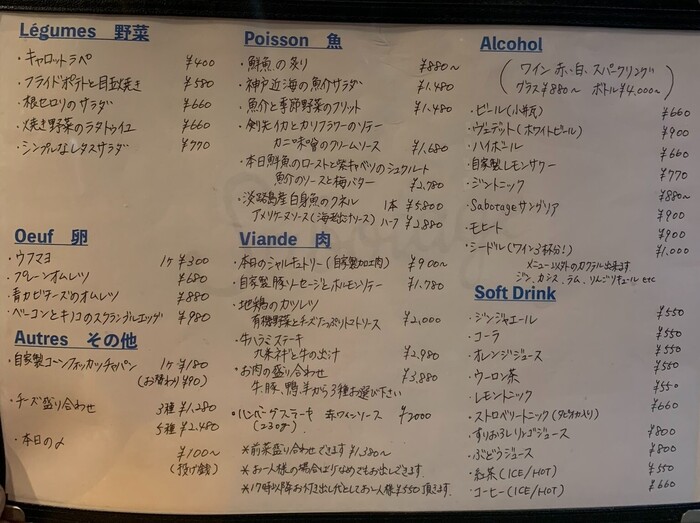 Légumes 野菜
・キャロットラペ ¥400
・フライドポテトと目玉焼き ¥580
・根セロリのサラダ ¥660
・焼き野菜のラタトゥイユ ¥660
・シンプルなレタスサラダ ¥770
Oeuf 卵
・ウフマヨ 1ケ ¥300
・プレーンオムレツ ¥680
・青カビチーズのオムレツ ¥880
・ベーコンとキノコのスクランブルエッグ ¥980
Autres その他
・自家製コーンフォカッチャパン 1ケ ¥180
(お替わり ¥90)
・チーズ盛り合わせ 3種 ¥1,280
5種 ¥2,480
・本日の〆 ¥100〜
(投げ銭)
Poisson 魚
・鮮魚の炙り ¥880〜
・神戸近海の魚介サラダ ¥1,480
・魚介と季節野菜のフリット ¥1,480
・剣先イカとカリフラワーのソテー
カニ味噌のクリームソース ¥1,680
・本日鮮魚のローストと紫キャベツのシュクルート
魚介のソースと梅バター ¥2,780
・淡路島産白身魚のクネル 1本 ¥5,800
アメリケーヌソース(海老だけソース) ハーフ ¥2,880
Viande 肉
・本日のシャルキュトリー(自家製加工肉) ¥900〜
・自家製豚ソーセージとホルモンソテー ¥1,780
・地鶏のカツレツ
有機野菜とチーズたっぷりトマトソース ¥2,000
・牛ハラミステーキ
九条ネギと牛の出汁 ¥2,980
・お肉の盛り合わせ ¥3,880
牛、豚、鴨、羊から3種お選び下さい
・ハンバーグステーキ 赤ワインソース ¥2000
(230g)
*前菜盛り合わせできます ¥1,380〜
*お一人様の場合はりなめでもお出しできます
*17時以降お付き出し代としてお一人様¥550頂きます.
Alcohol
(ワイン 赤、白、スパークリング
グラス¥880〜 ボトル¥4,000〜)
・ビール(小瓶) ¥660
・ヴェデット(ホワイトビール) ¥900
・ハイボール ¥660
・自家製レモンサワー ¥770
・ジントニック ¥880〜
・Sabotageサングリア ¥900
・モヒート ¥900
・シードル(ワイン3杯分!) ¥1,000
メニュー以外のカクテル出来ます
ジン、カシス、ラム、りんごリキュール etc
Soft Drink
・ジンジャエール ¥550
・コーラ ¥550
・オレンジジュース ¥550
・ウーロン茶 ¥550
・レモントニック ¥660
・ストロベリートニック(タピオカ入り)
・すりおろしリンゴジュース ¥800
・ぶどうジュース ¥800
・紅茶(ICE/HOT) ¥550
・コーヒー(ICE/HOT) ¥660